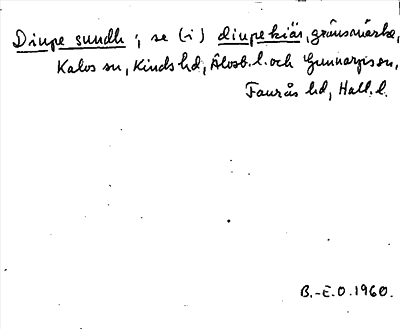 Diupe sundh ; se (i) diupekiär, gränsmärke,
Kalvs sn, Kinds hd, Älvsb. l. och Gunnarps sn,
Faurås hd, Hall. l.
B.-E.O. 1960.